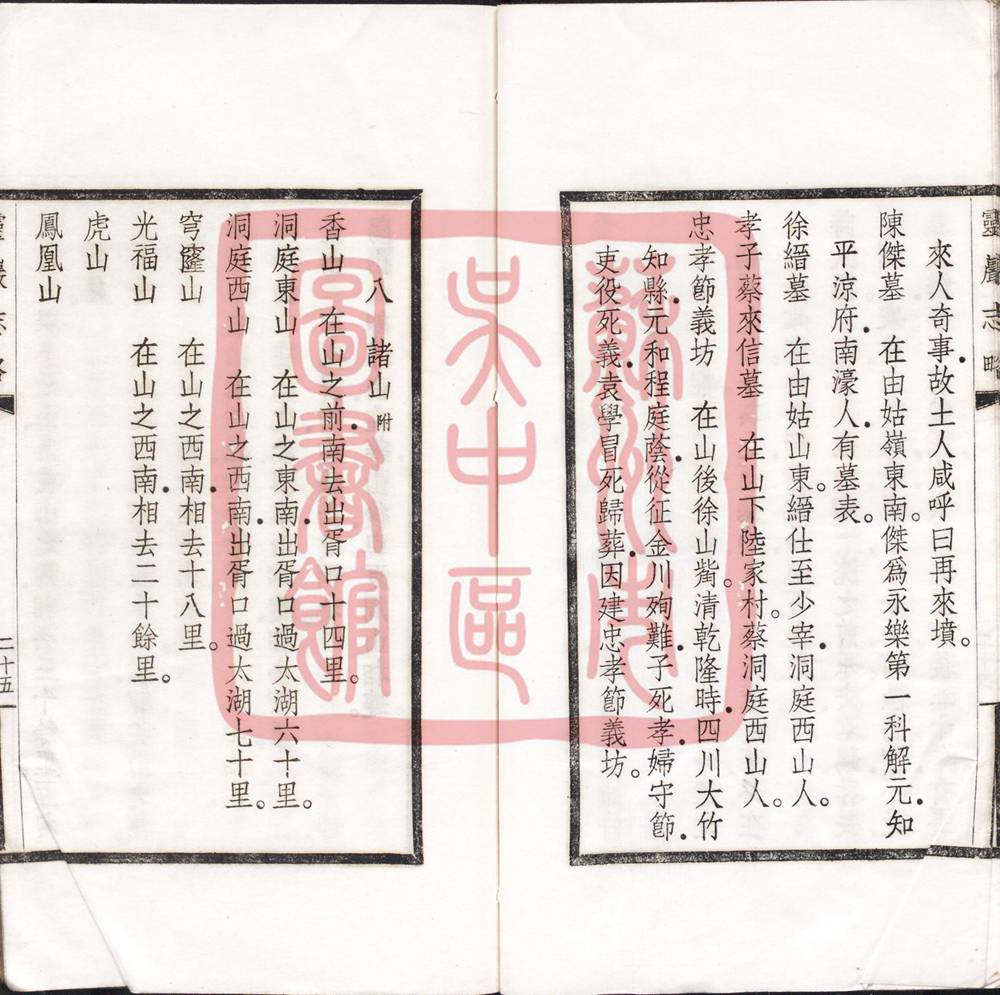 靈巖志略
來人奇事．故土人咸呼曰再來墳。
陳傑墓　在由姑嶺東南。傑爲永樂第一科解元．知
平涼府．南濠人．有墓表。
徐縉墓　在由姑山東。縉仕至少宰．洞庭西山人。
孝子蔡來信墓　在山下陸家村．蔡洞庭西山人。
忠孝節義坊　在山後徐山嘴。清乾隆時．四川大竹
知縣．元和程庭蔭．從征金川殉難．子死孝．婦守節．
吏役死義．袁學冒死歸葬．因建忠孝節義坊。
八　諸山附
香山　在山之前．南去出胥口十四里。
洞庭東山　在山之東南．出胥口過太湖六十里。
洞庭西山　在山之西南．出胥口過太湖七十里。
穹窿山　在山之西南．相去十八里。
光福山　在山之西南．相去二十餘里。
虎山
鳳凰山
靈巖志略
二十五
蘇州市
吳中區
圖書館